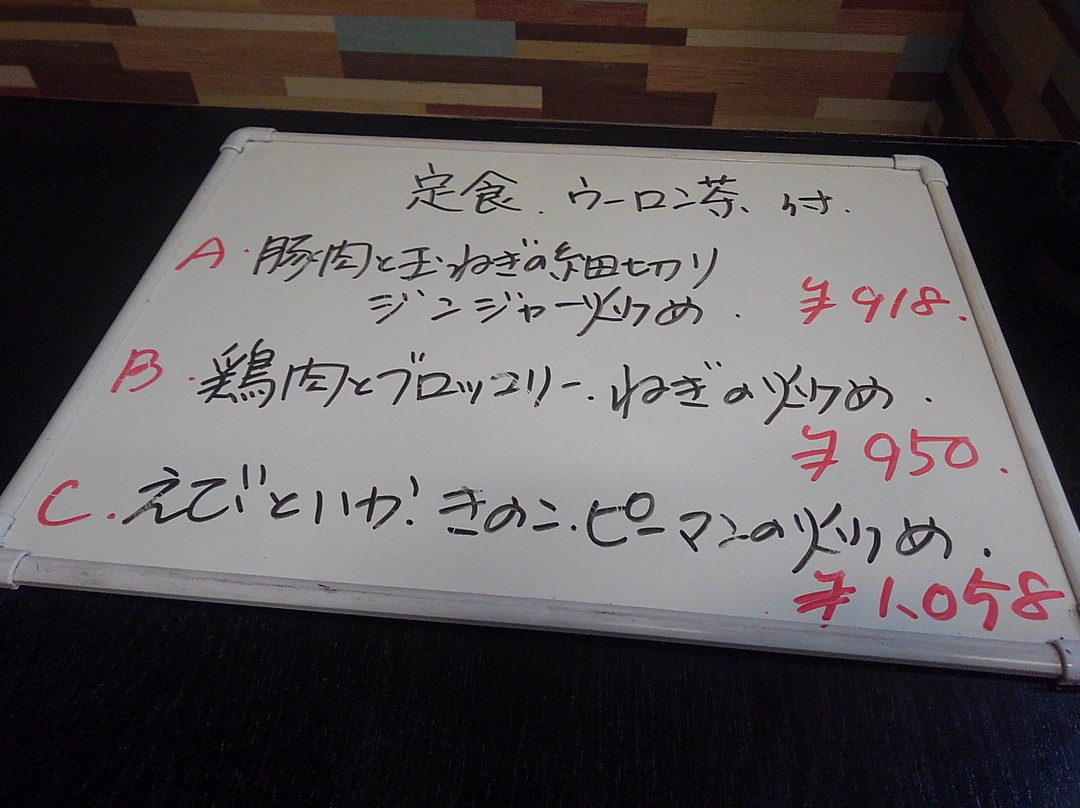 定食、ウーロン茶、付.
A. 豚肉と玉ねぎの細切り
ジンジャー炒め. ¥918.
B. 鶏肉とブロッコリー、ねぎの炒め.
¥950.
C. えびといか、きのこ、ピーマンの炒め.
¥1,058